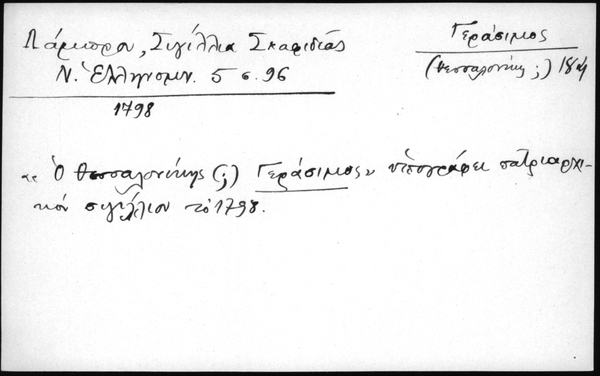 Λάμπρου, Σιγίλλια Σκαριδιάς
Ν. Ἑλληνομν. 5 σ. 96
1798
Γεράσιμος
(Θεσσαλονίκης ;)
«Ὁ Θεσσαλονίκης (;) Γεράσιμος» ὑπογράφει πατριαρχι-
κόν σιγίλλιον τό 1798.